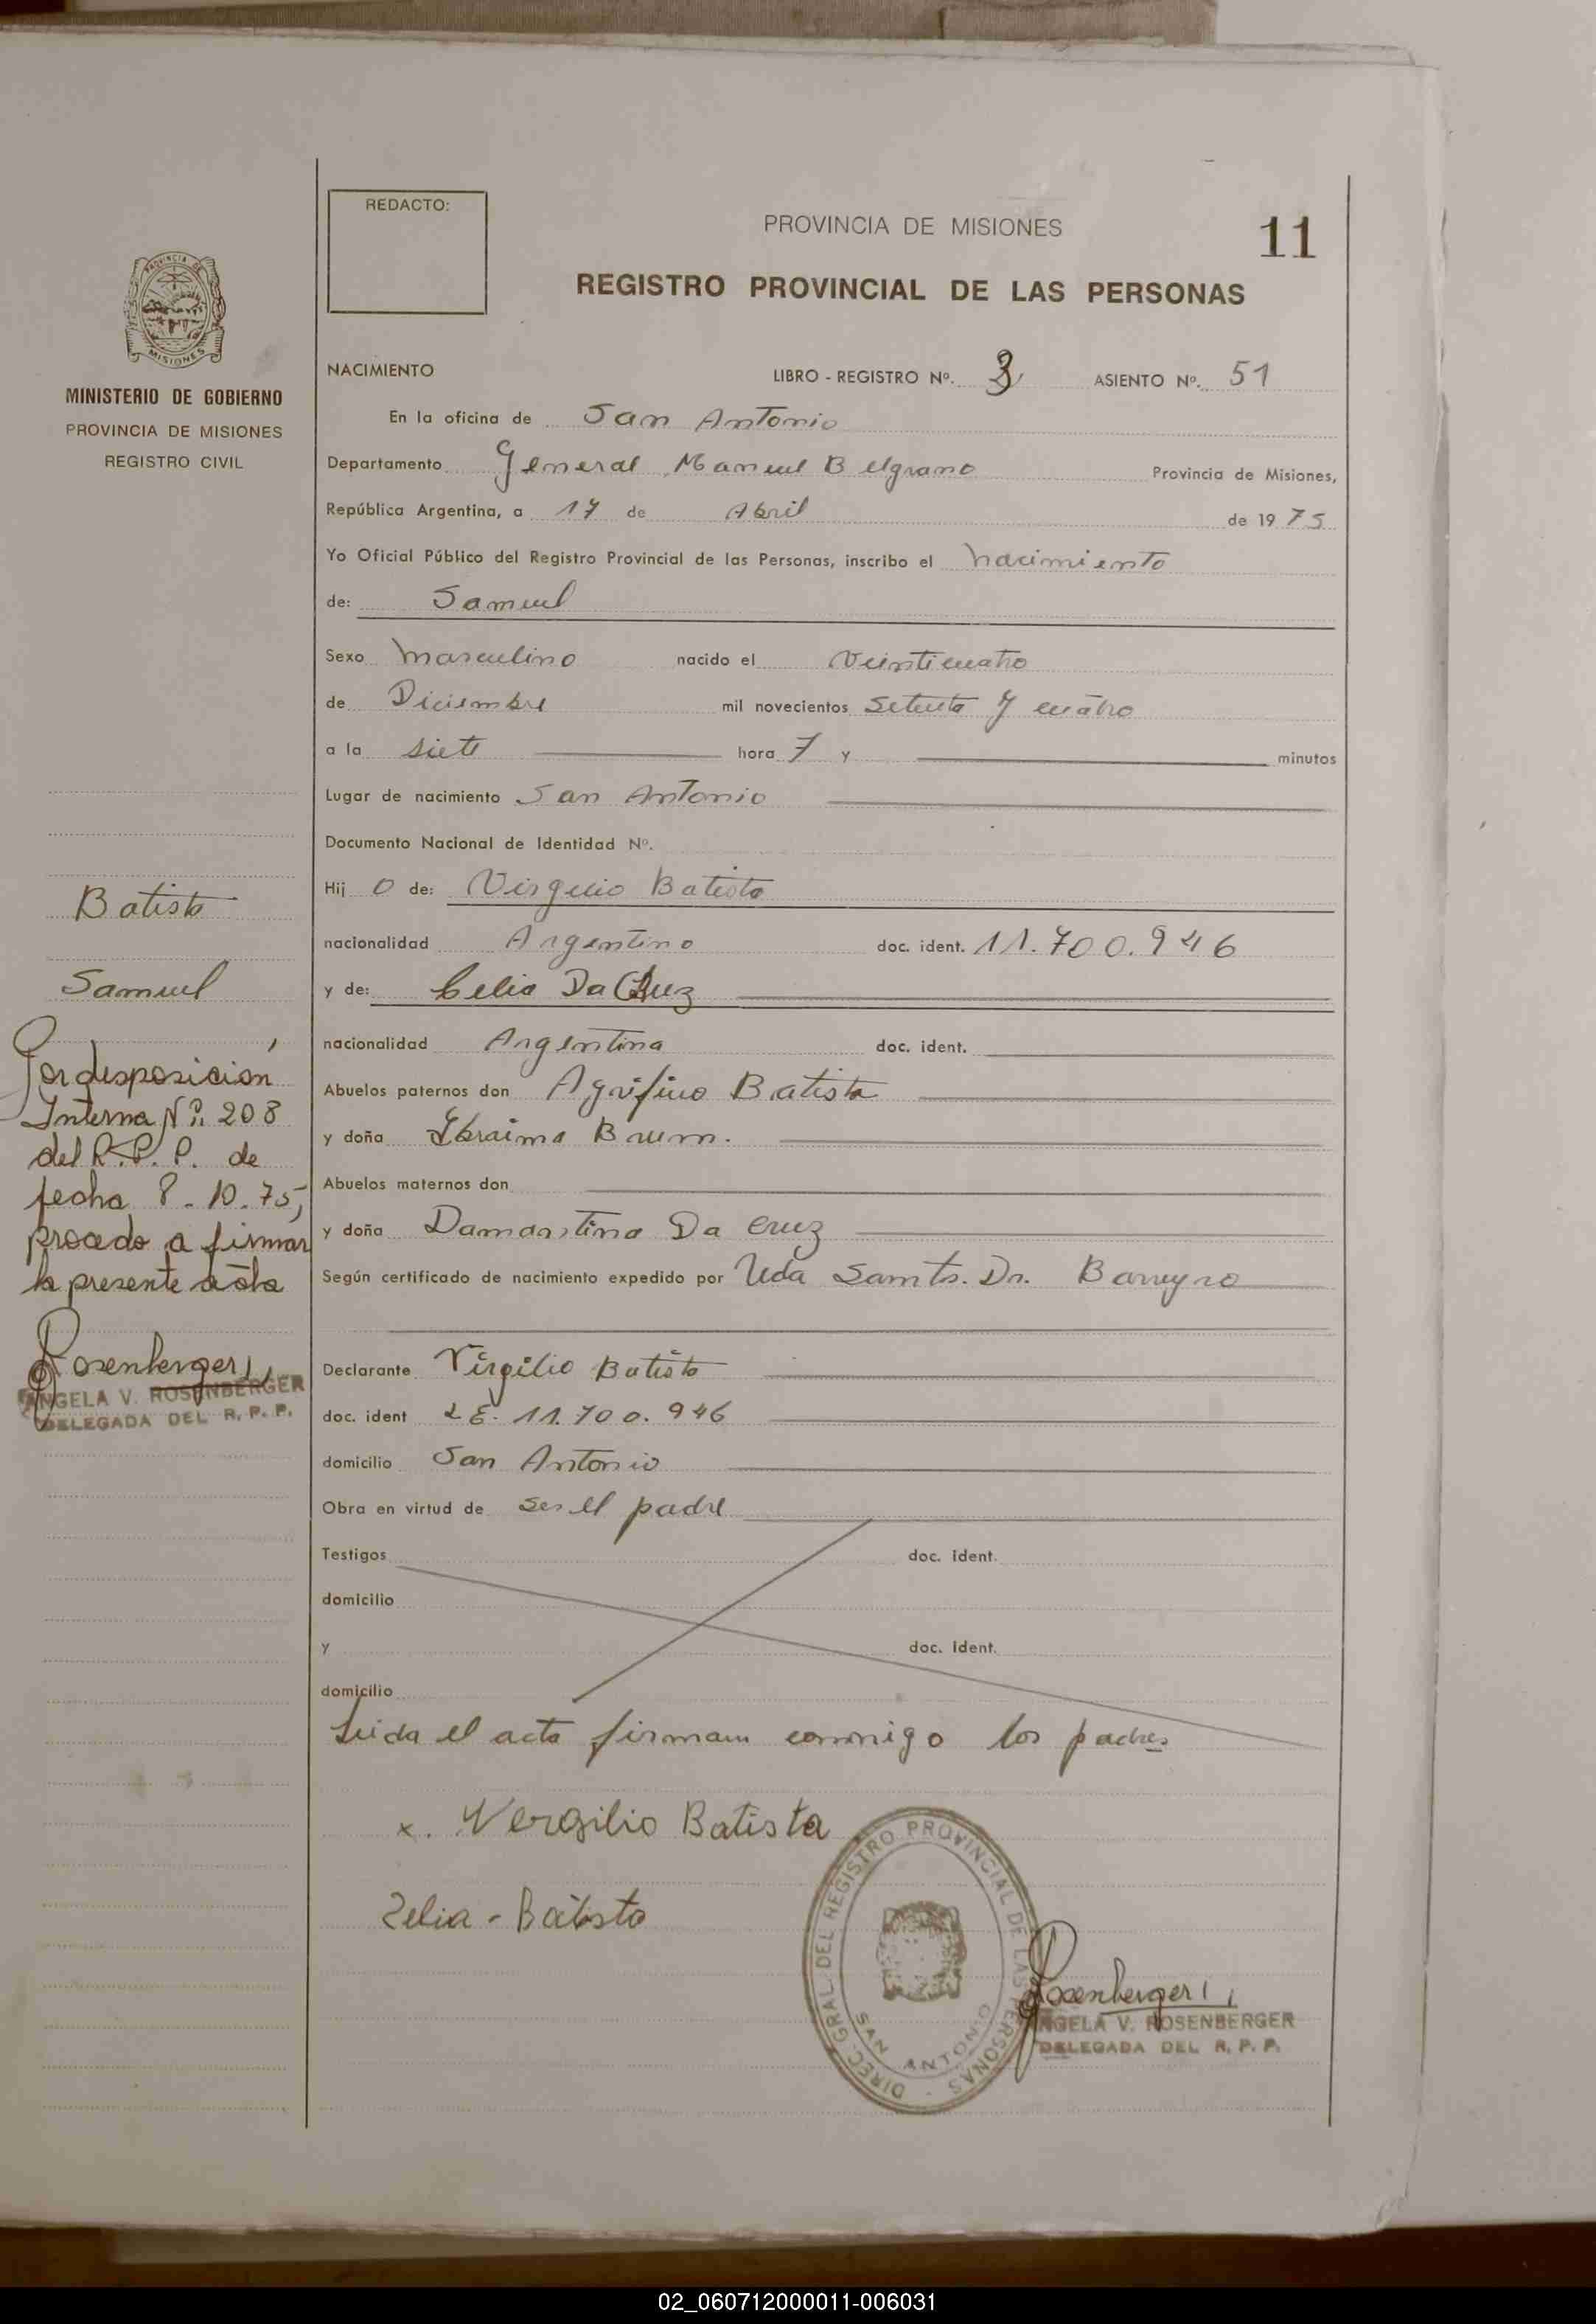 REDACTO:
PROVINCIA DE MISIONES
11
REGISTRO PROVINCIAL DE LAS PERSONAS
PROVINCIA DE
MISIONES
MINISTERIO DE GOBIERNO
PROVINCIA DE MISIONES
REGISTRO CIVIL
NACIMIENTO LIBRO - REGISTRO Nº. 3 ASIENTO Nº. 51
En la oficina de San Antonio
Departamento General Manuel Belgrano Provincia de Misiones,
República Argentina, a 17 de Abril de 19 75
Yo Oficial Público del Registro Provincial de las Personas, inscribo el nacimiento
de: Samuel
Sexo masculino nacido el veinticuatro
de Diciembre mil novecientos setenta y cuatro
a la siete hora 7 y minutos
Lugar de nacimiento San Antonio
Documento Nacional de Identidad Nº.
Hij o de: Virgilio Batista
nacionalidad Argentino doc. ident. 11.700.946
y de: Celia Da Cruz
nacionalidad Argentina doc. ident.
Abuelos paternos don Agrifino Batista
y doña Brum.
Abuelos maternos don
y doña Damantina Da Cruz
Según certificado de nacimiento expedido por Dr. Barreyro
Declarante Virgilio Batista
doc. ident L E. 11.700.946
domicilio San Antonio
Obra en virtud de ser el padre
Testigos doc. ident.
domicilio
y doc. ident.
domicilio
Leida el acta firman conmigo los padres
x. Vergilio Batista
Zelia - Batista
DIREC. GRAL. DEL REGISTRO PROVINCIAL DE LAS PERSONAS
SAN ANTONIO
Rosenberger
ANGELA V. ROSENBERGER
DELEGADA DEL R. P. P.
Batista
Samuel
Por disposición
Interna Nº. 208
del R.P.P. de
fecha 8-10-75,
procedo a firmar
la presente acta
Rosenberger
ANGELA V. ROSENBERGER
DELEGADA DEL R. P. P.
02_060712000011-006031